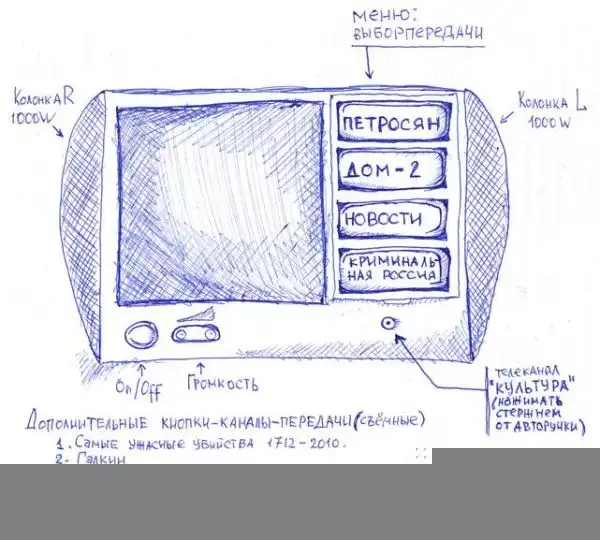 МЕНЮ:
ВЫБОР ПЕРЕДАЧИ
КОЛОНКА R
1000W
КОЛОНКА L
1000W
ПЕТРОСЯН
ДОМ-2
НОВОСТИ
КРИМИНАЛЬ-
НАЯ РОССИЯ
On/Off
ГРОМКОСТЬ
ТЕЛЕКАНАЛ
"КУЛЬТУРА"
(НАЖИМАТЬ
СТЕРЖНЕМ
ОТ АВТОРУЧКИ)
ДОПОЛНИТЕЛЬНЫЕ КНОПКИ-КАНАЛЫ-ПЕРЕДАЧИ (СЪЁМНЫЕ)
1. САМЫЕ УЖАСНЫЕ УБИЙСТВА 1712-2010.
2- ГАЛКИН